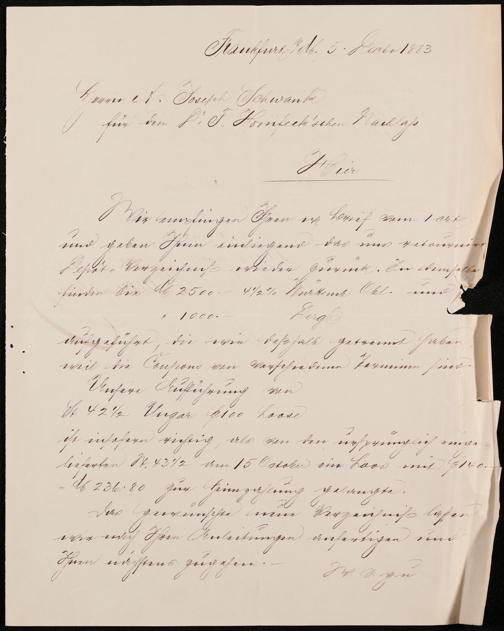 Frankfurt a/M. 5. Decbr 1883
Herrn A. Joseph Schwank
für den P. J. Hornfeck'schen Nachlass
Hier
Wir empfingen Ihren w. Brief vom 1 crt
und geben Ihnen einliegend das uns retournirte
Depôt-Verzeichniß wieder zurück. In demselben
finden Sie M 2500.- 4½% Württemb Obl. und
" 1000.- Desgl
aufgeführt, die wir deßhalb getrennt haben
weil die Coupons von verschiedenen Terminen sind.
Unsere Aufführung von
St 42½ Ungar f100 Loose
ist insofern richtig, als von den ursprünglich einge-
lieferten St. 43½ am 15 October ein Loos mit f140.-
= M 236.80 zur Heimzahlung gelangte.
Das gewünschte neue Verzeichniß lassen
wir nach Ihren Anleitungen anfertigen und
Ihnen nächstens zugehen.-